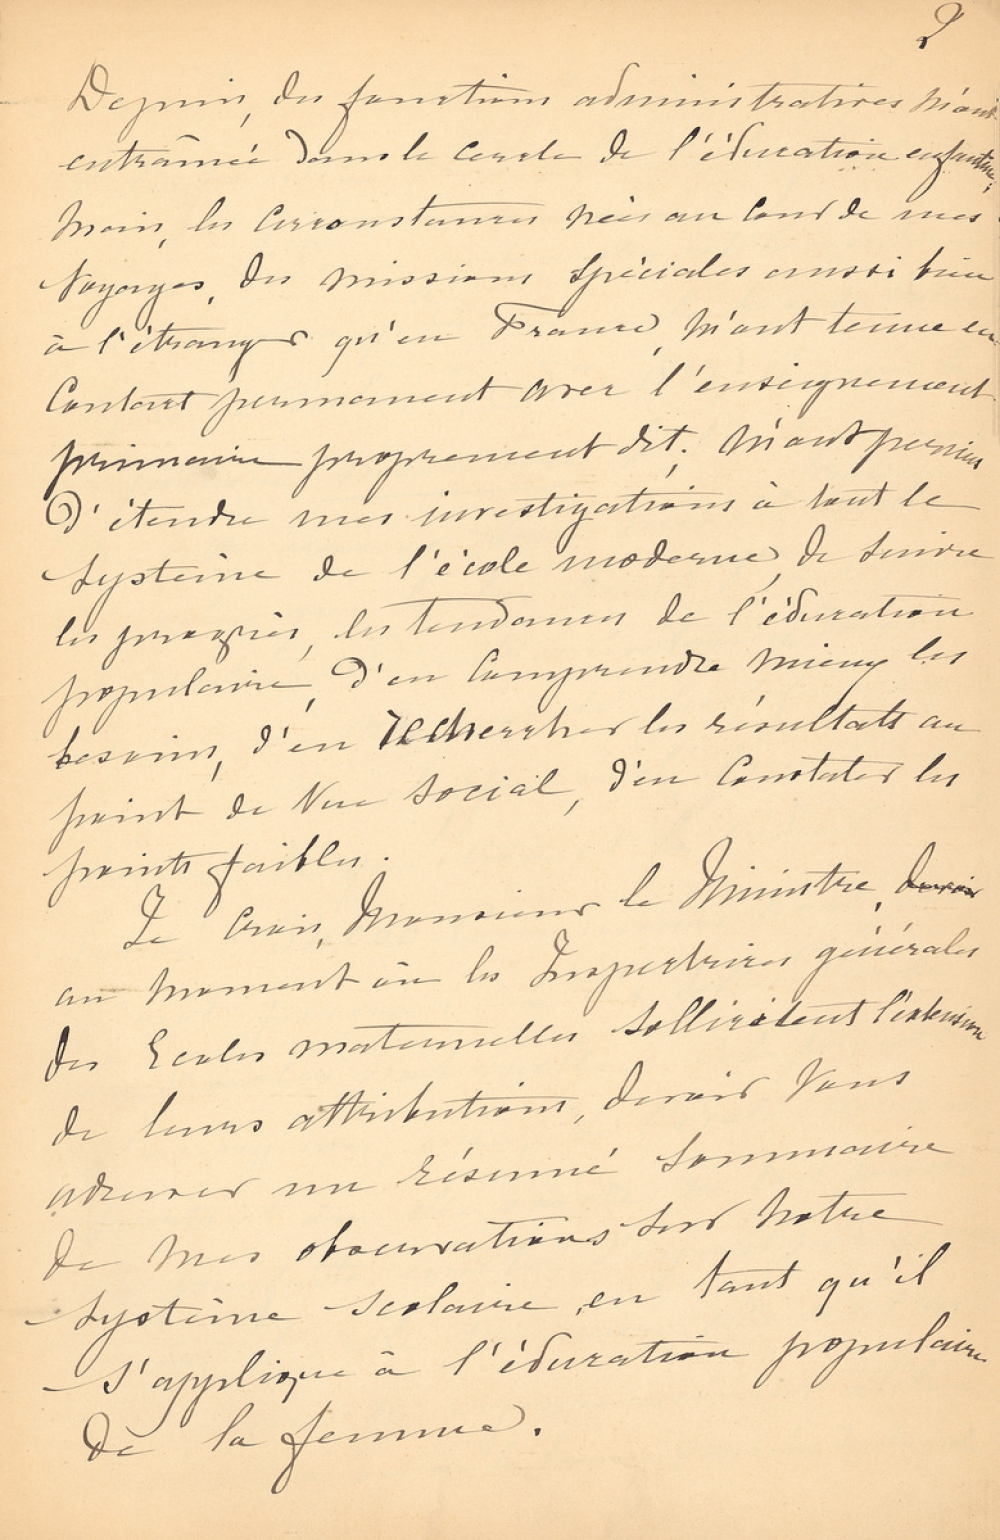 2
Depuis, des fonctions administratives m'ont
entrainée dans le cercle de l'éducation enfantine;
mais, les circonstances nées au cours de mes
voyages, des missions spéciales aussi bien
à l'étranger qu'en France, m'ont tenue en
contact permanent avec l'enseignement
primaire proprement dit; m'ont permis
d'étendre mes investigations à tout le
système de l'école moderne, de suivre
les progrès, les tendances de l'éducation
populaire, d'en comprendre mieux les
besoins, d'en rechercher les résultats au
point de vue social, d'en constater les
points faibles.
Je crois, Monsieur le Ministre, devoir
au moment où les Inspectrices générales
des Ecoles maternelles sollicitent l'extension
de leurs attributions, devoir vous
adresser un résumé sommaire
de mes observations sur notre
système scolaire, en tant qu'il
s'applique à l'éducation populaire
de la femme.